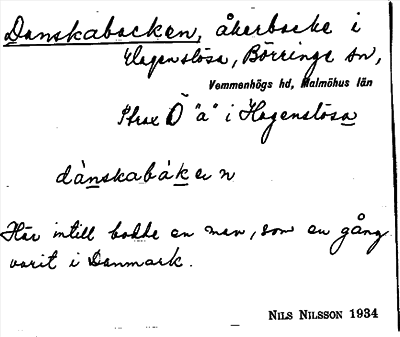 Danskabacken, åkerbacke i
Hagenslösa, Börringe sn,
Vemmenhögs hd, Malmöhus län
Strax Ö "a" i Hagenslösa
dànskabáken
Här intill bodde en man, som en gång
varit i Danmark.
NILS NILSSON 1934